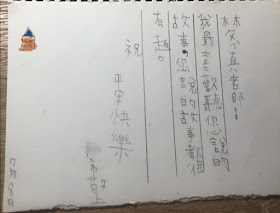 林真老師:
我最喜歡聽您說的
故事,您說的故事都很
有趣
祝
平安快樂
上
月8日